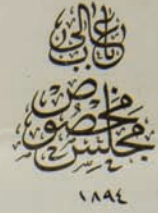 باب عالى
مجلس مخصوص
١٨٩٤